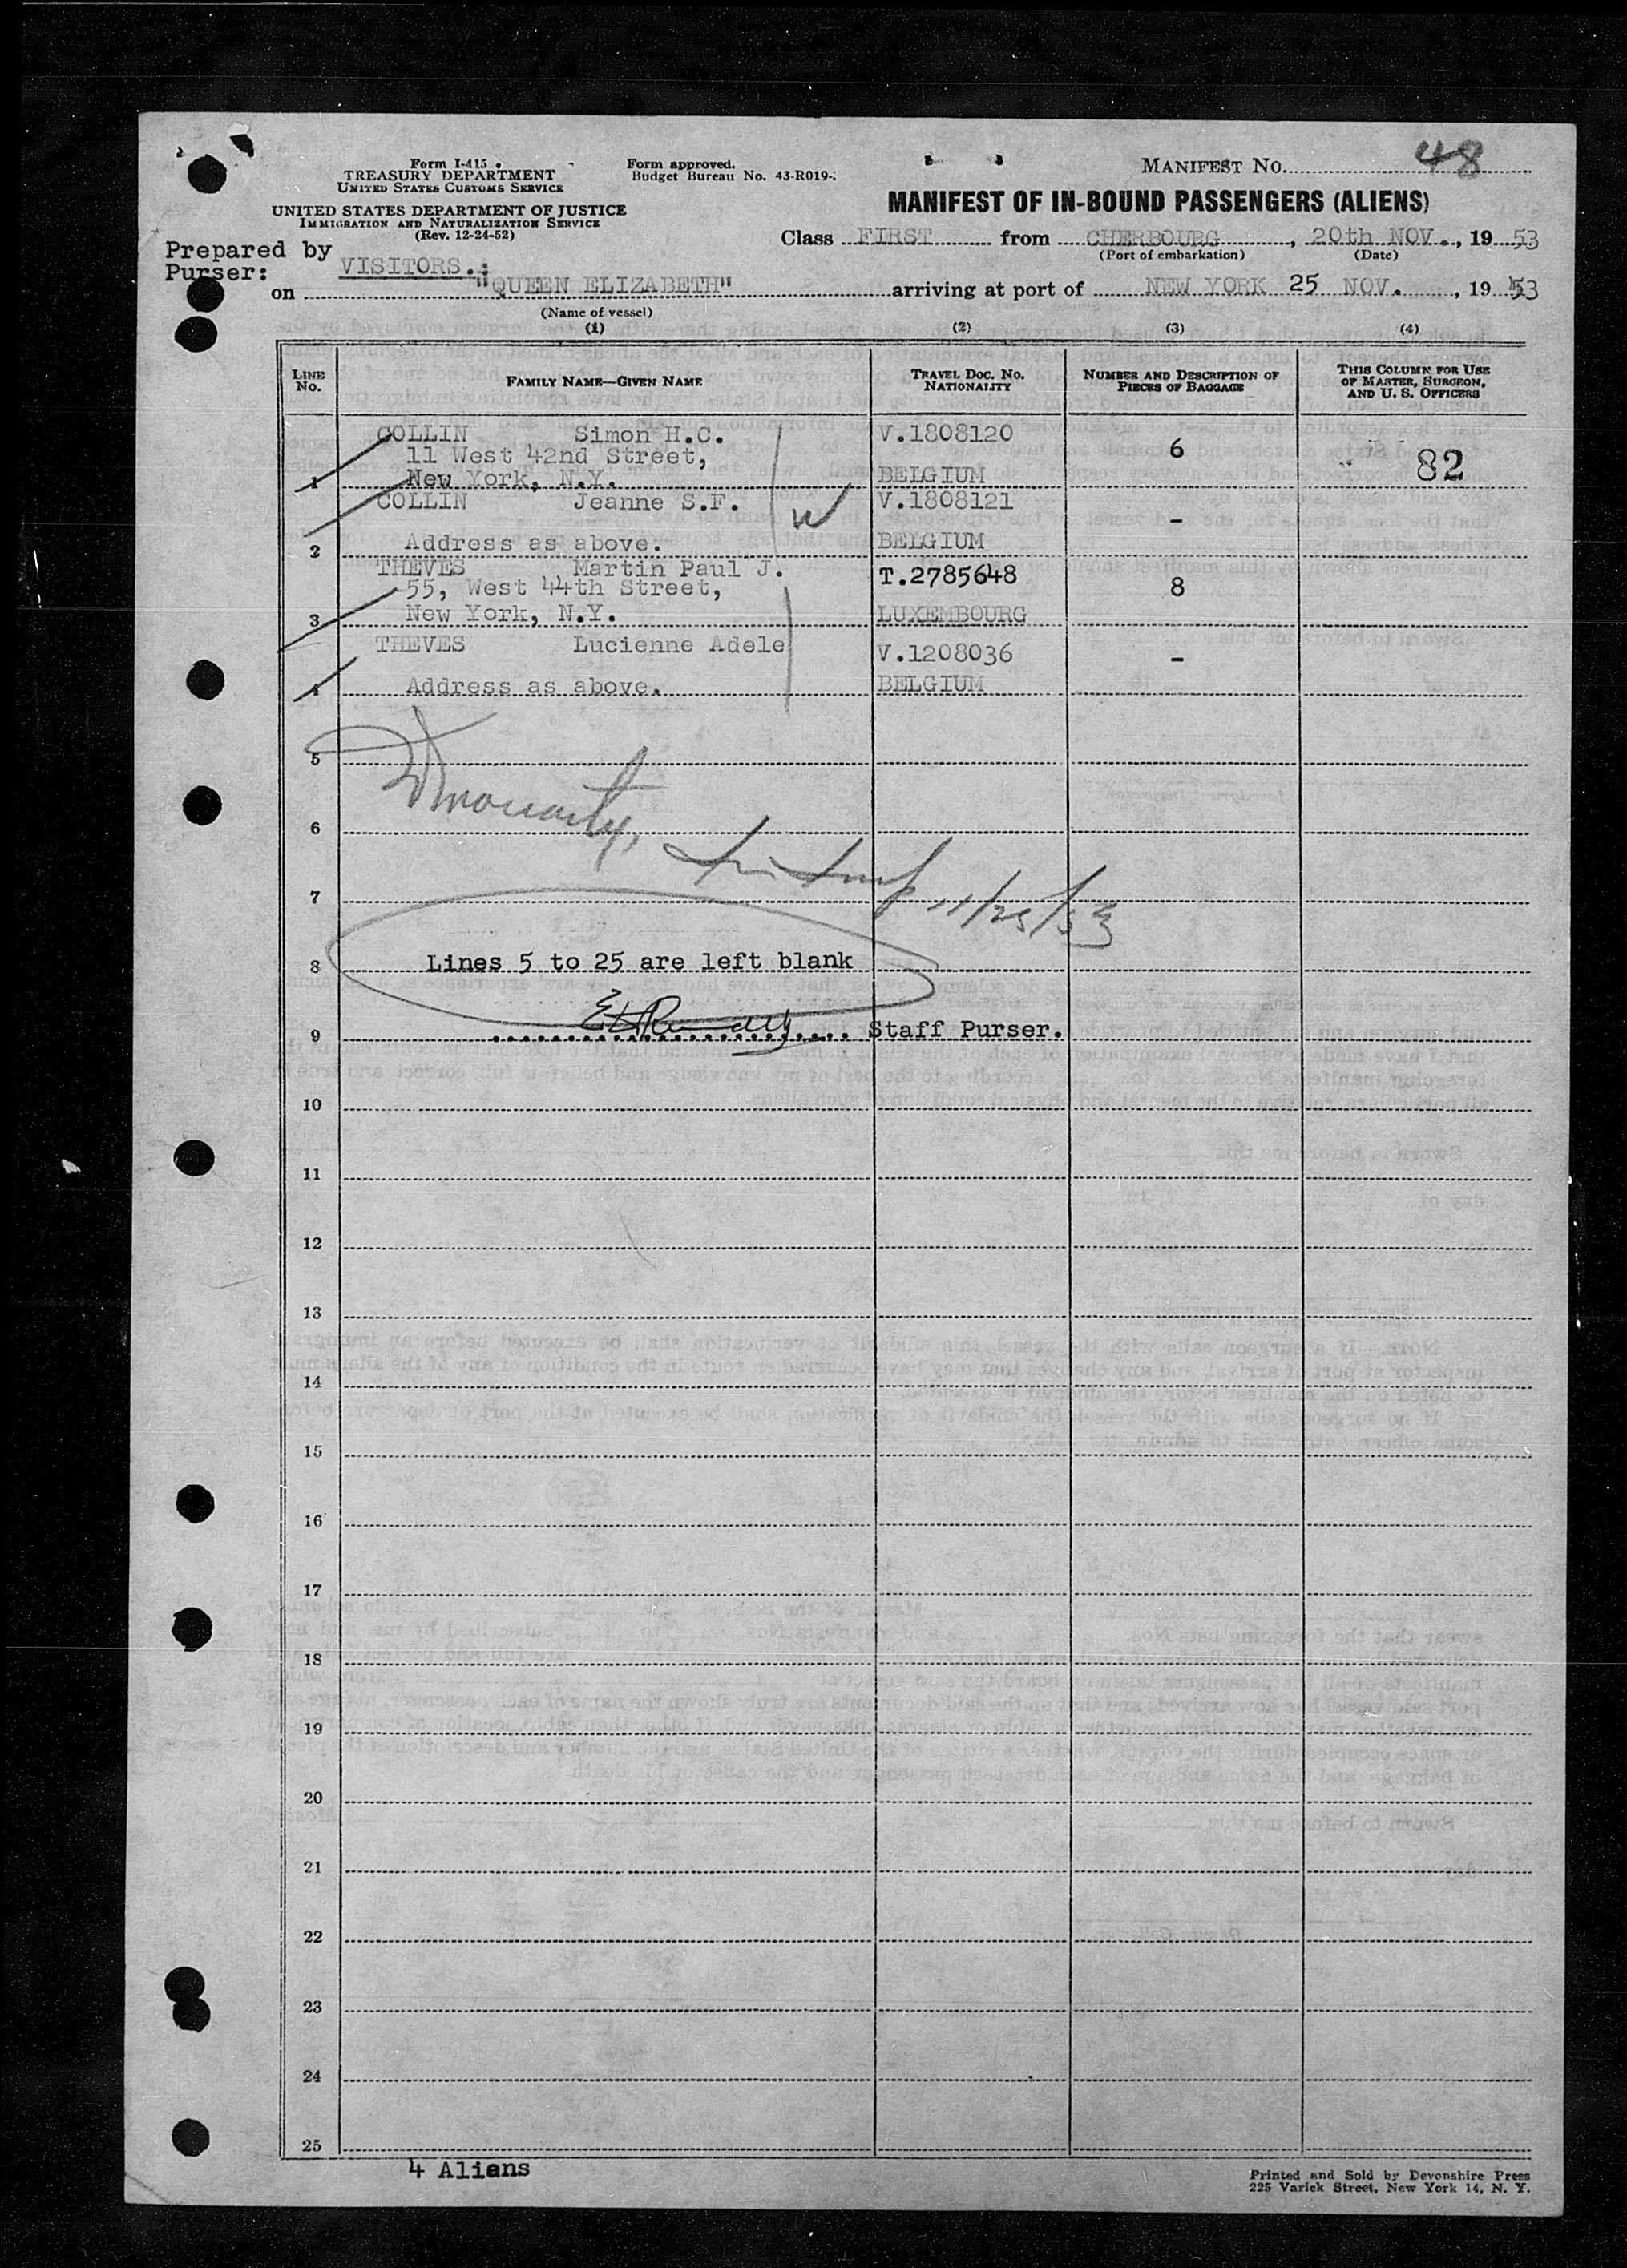 Form I-415
TREASURY DEPARTMENT
UNITED STATES CUSTOMS SERVICE
UNITED STATES DEPARTMENT OF JUSTICE
IMMIGRATION AND NATURALIZATION SERVICE
(Rev. 12-24-52)
Form approved.
Budget Bureau No. 43-R019-
MANIFEST NO. 48
MANIFEST OF IN-BOUND PASSENGERS (ALIENS)
Class FIRST from CHERBOURG, 20th NOV., 1953
(Port of embarkation) (Date)
Prepared by
Purser:
VISITORS.:
on "QUEEN ELIZABETH" arriving at port of NEW YORK 25 NOV. , 1953
(Name of vessel)
(1) (2) (3) (4)
LINE No. FAMILY NAME—GIVEN NAME TRAVEL DOC. NO. NATIONALITY NUMBER AND DESCRIPTION OF PIECES OF BAGGAGE THIS COLUMN FOR USE OF MASTER, SURGEON, AND U. S. OFFICERS
COLLIN Simon H.C. V.1808120 6 82
11 West 42nd Street,
1 New York, N.Y. BELGIUM
COLLIN Jeanne S.F. V.1808121 -
2 Address as above. BELGIUM
THEVES Martin Paul J. T.2785648 8
55, West 44th Street,
3 New York, N.Y. LUXEMBOURG
THEVES Lucienne Adele V.1208036 -
4 Address as above. BELGIUM
5
6
7 11/25/53
8 Lines 5 to 25 are left blank
9 Staff Purser.
10
11
12
13
14
15
16
17
18
19
20
21
22
23
24
25
4 Aliens
Printed and Sold by Devonshire Press
225 Varick Street, New York 14, N. Y.